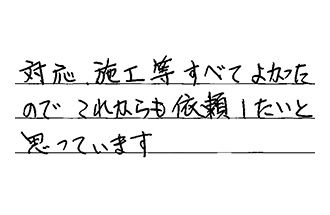 対応、施工等すべてよかった
のでこれならも依頼したいと
思っています